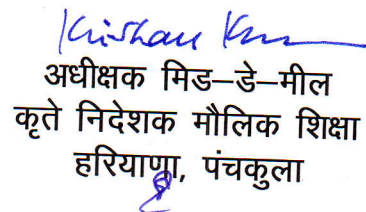 Krishan Kum
अधीक्षक मिड–डे–मील
कृते निदेशक मौलिक शिक्षा
हरियाणा, पंचकुला